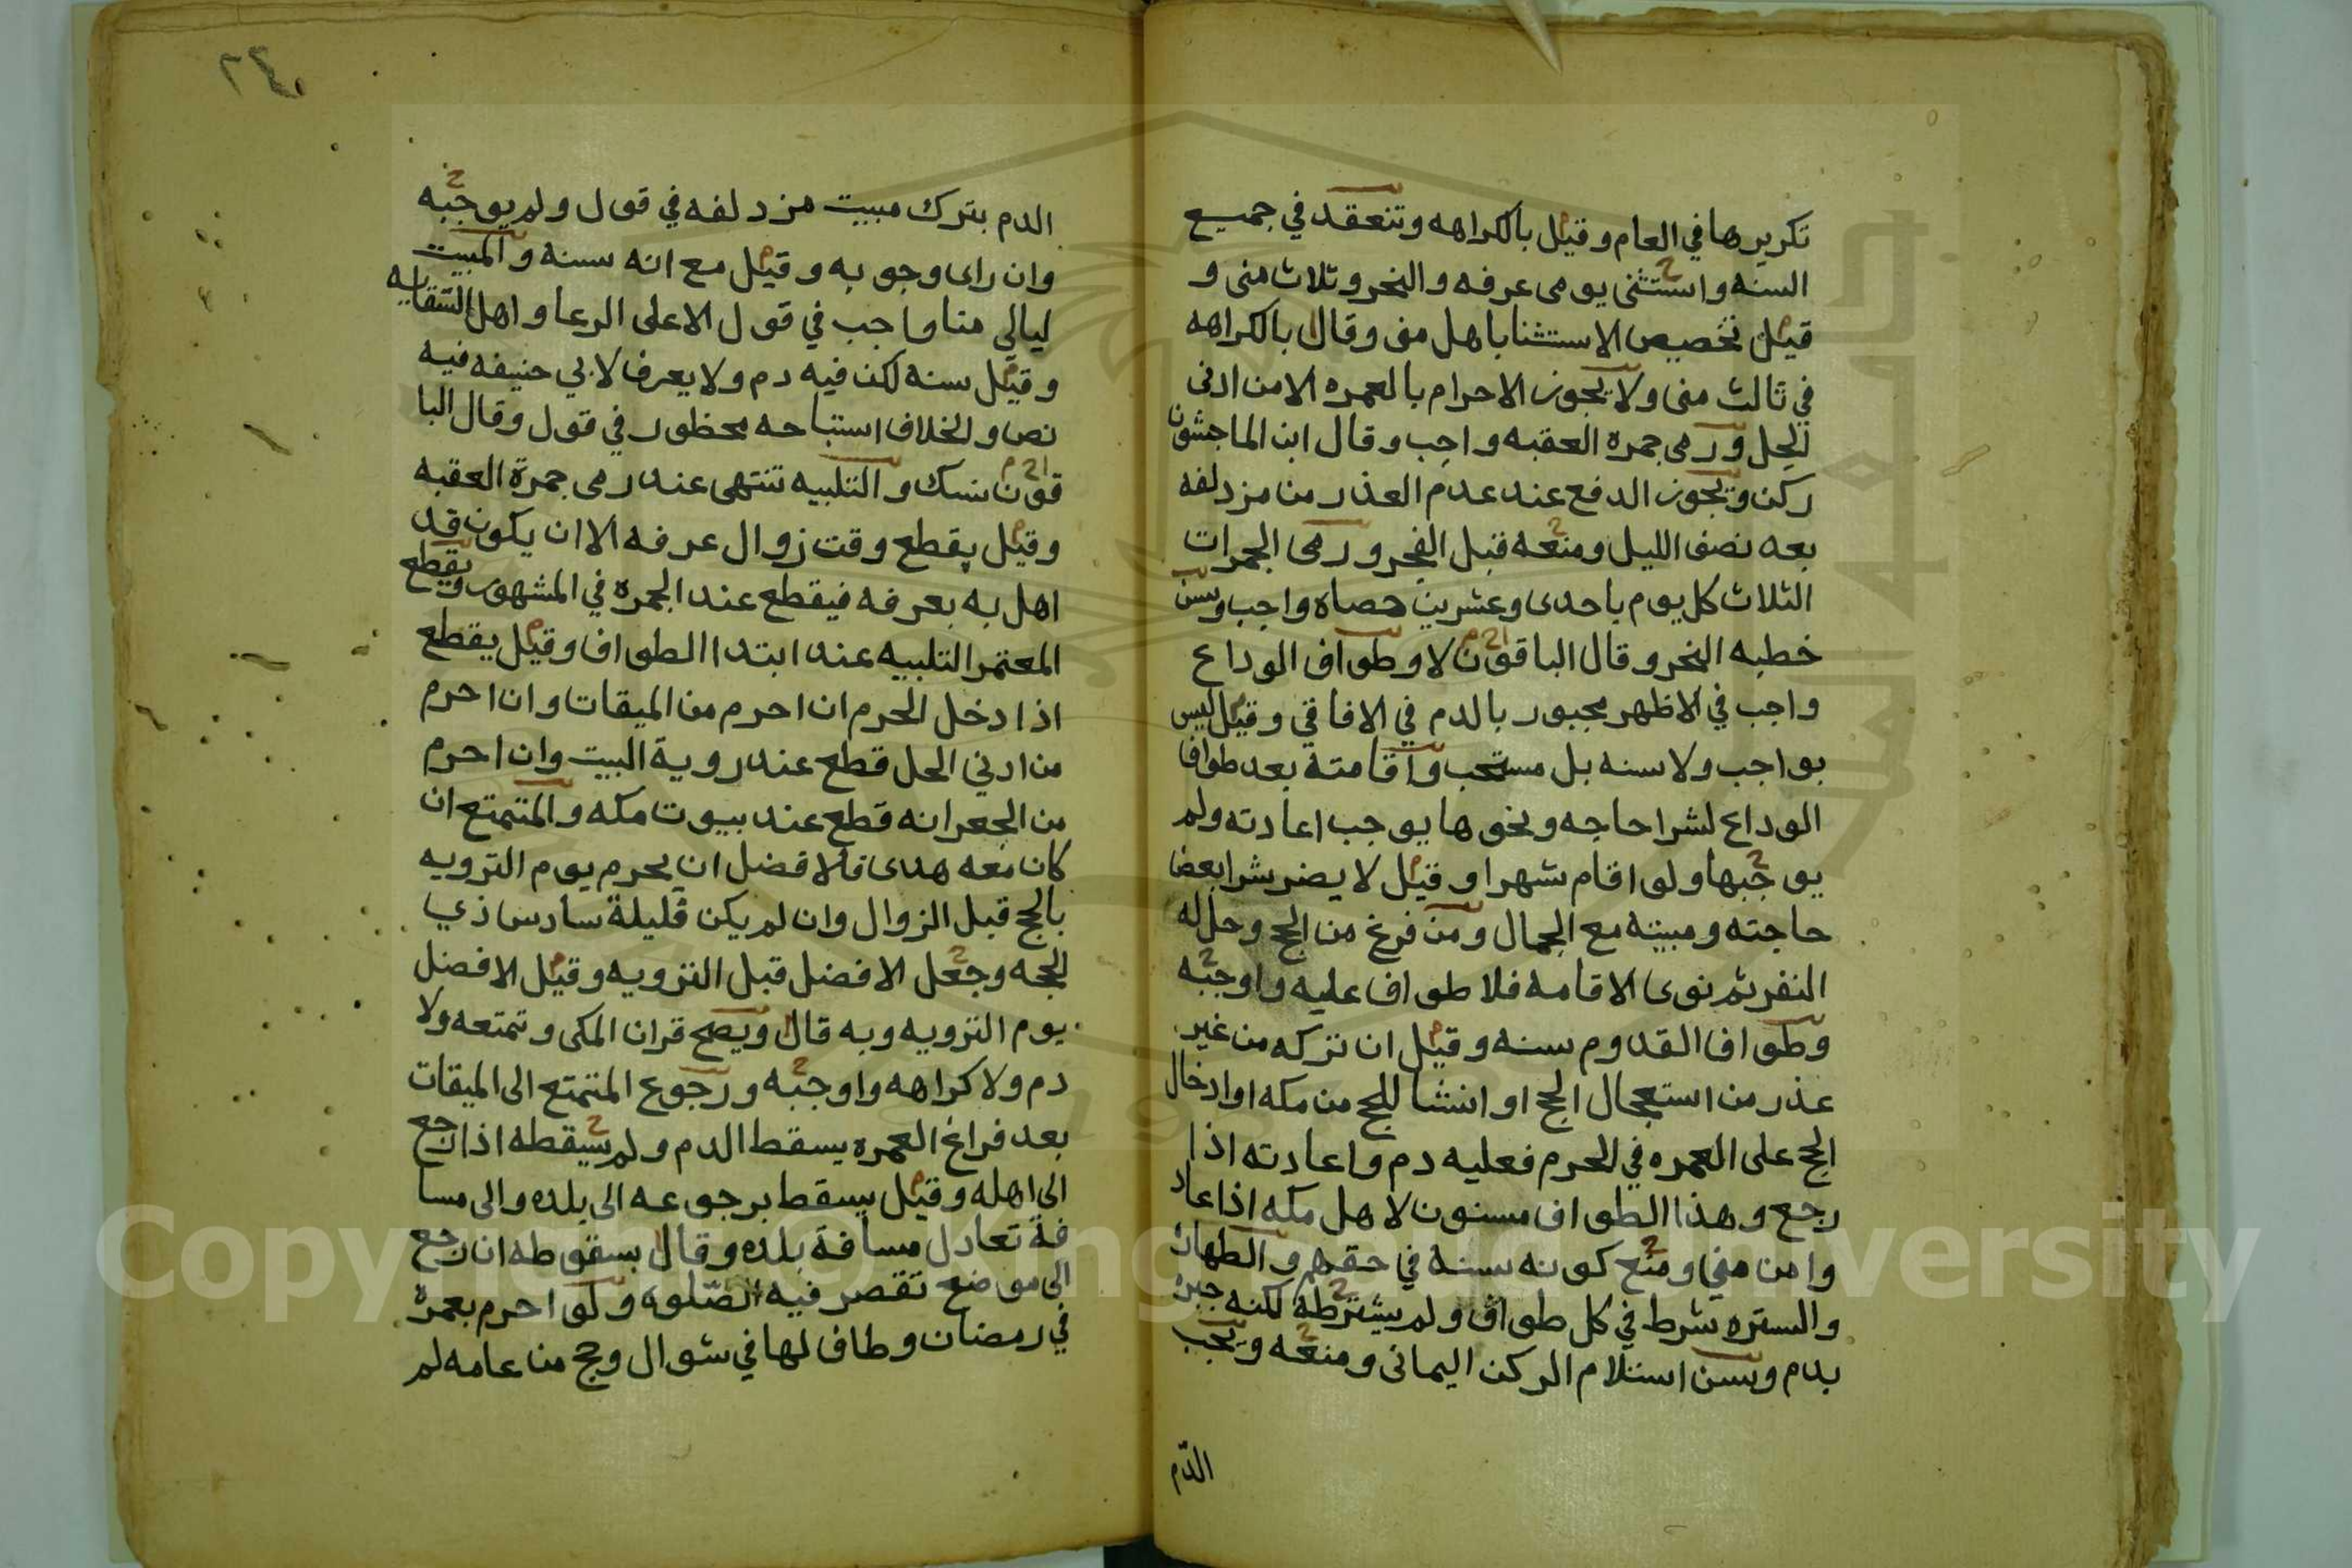 تكريرها في العام وقيل بالكراهه وتنعقد في جميع
السنه واستثنى يومى عرفه والنحر وثلاث منى و
قيل تخصيص الاستثنا باهل منى وقال بالكراهه
في ثالث منى ولا يجوز الاحرام بالعمره الا من ادنى
الحل ورمى جمره العقبه واجب وقال ابن الماجشون
ركن ويجوز الدفع عند عدم العذر من مزدلفه
بعد نصف الليل ومنعه قبل الفجر ورمى الجمرات
الثلاث كل يوم باحدى وعشرين حصاه واجب ويسن
خطبه النحر وقال الباقون لا وطواف الوداع
واجب في الاظهر مجبور بالدم في الافاقي وقيل ليس
بواجب ولا سنه بل مستحب واقامته بعد طواف
الوداع لشرا حاجه ونحوها يوجب اعادته ولم
يوجبها ولو اقام شهرا وقيل لا يضر شرا بعض
حاجته ومبيته مع الجمال ومن فرغ من الحج وحل له
النفر ثم نوى الاقامه فلا طواف عليه واوجبه
وطواف القدوم سنه وقيل ان تركه من غير
عذر من استعجال الحج او انشا للحج من مكه او ادخال
الحج على العمره في الحرم فعليه دم واعادته اذا
رجع وهذا الطواف مسنون لاهل مكه اذا عاد
وا من منى ومنع كونه سنه في حقهم والطهارة
والستره شرط في كل طواف ولم يشترطه لكنه جبره
بدم ويسن استلام الركن اليمانى ومنعه ويجب
الدم
٢٤٠
الدم بترك مبيت مزدلفه في قول ولم يوجبه
وان راى وجوبه وقيل مع انه سنه والمبيت
ليالي منا واجب في قول الا على الرعا واهل السقايه
وقيل سنه لكن فيه دم ولا يعرف لابي حنيفه فيه
نص والخلاف استباحه محظور في قول وقال البا
قون نسك والتلبيه تنتهى عند رمى جمرة العقبه
وقيل يقطع وقت زوال عرفه الا ان يكون قد
اهل به بعرفه فيقطع عند الجمره في المشهور ويقطع
المعتمر التلبيه عند ابتدا الطواف وقيل يقطع
اذا دخل الحرم ان احرم من الميقات وان احرم
من ادني الحل قطع عند روية البيت وان احرم
من الجعرانه قطع عند بيوت مكه والمتمتع ان
كان معه هدى فالافضل ان يحرم يوم الترويه
بالحج قبل الزوال وان لم يكن فليلة سادس ذي
الحجه وجعل الافضل قبل الترويه وقيل الافضل
يوم الترويه وبه قال ويصح قران المكى وتمتعه ولا
دم ولا كراهه واوجبه ورجوع المتمتع الى الميقات
بعد فراغ العمره يسقط الدم ولم يسقطه اذا رجع
الى اهله وقيل يسقط برجوعه الى بلده والى مسا
فة تعادل مسافة بلده وقال بسقوطه ان رجع
الى موضع تقصر فيه الصلوه ولو احرم بعمرة
في رمضان وطاف لها في شوال وحج من عامه لم